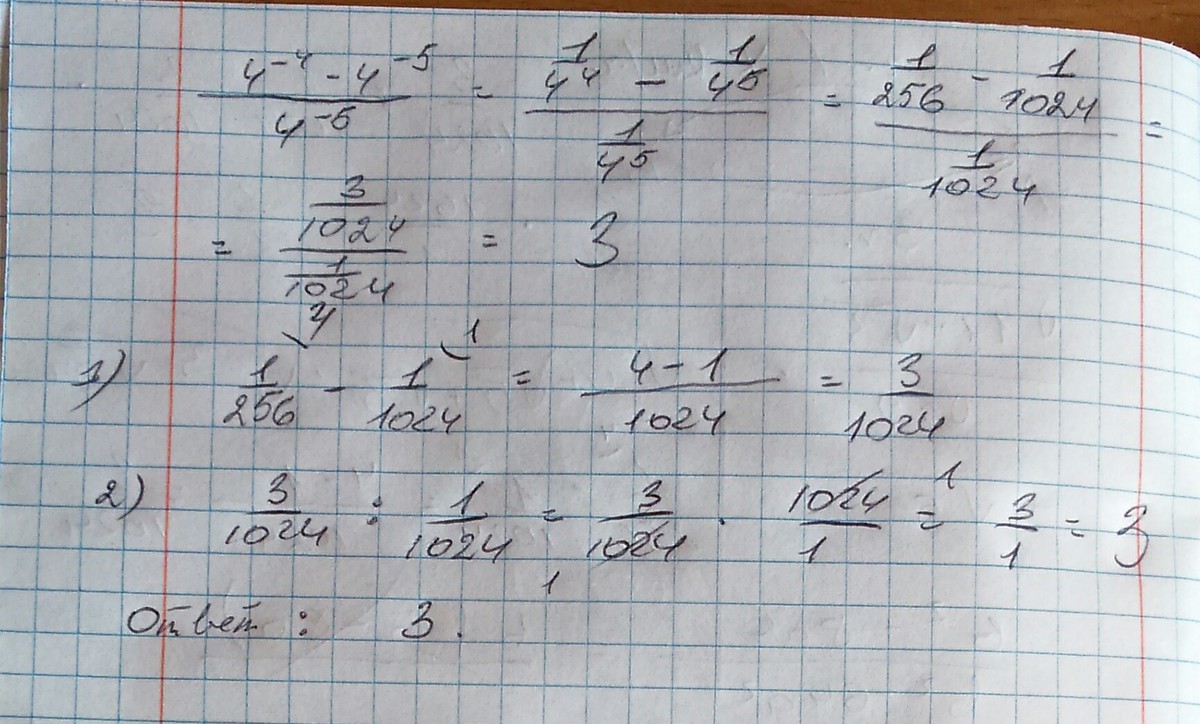 (4⁻⁴ - 4⁻⁵)/4⁻⁵ = (1/4⁴ - 1/4⁵)/(1/4⁵) = (1/256 - 1/1024)/(1/1024) =
= (3/1024)/(1/1024) = 3
1) 1/256 ⁴ - 1/1024 ¹ = (4-1)/1024 = 3/1024
2) 3/1024 : 1/1024 = 3/1024 ₁ · 1024/1 ¹ = 3/1 = 3
Ответ : 3.